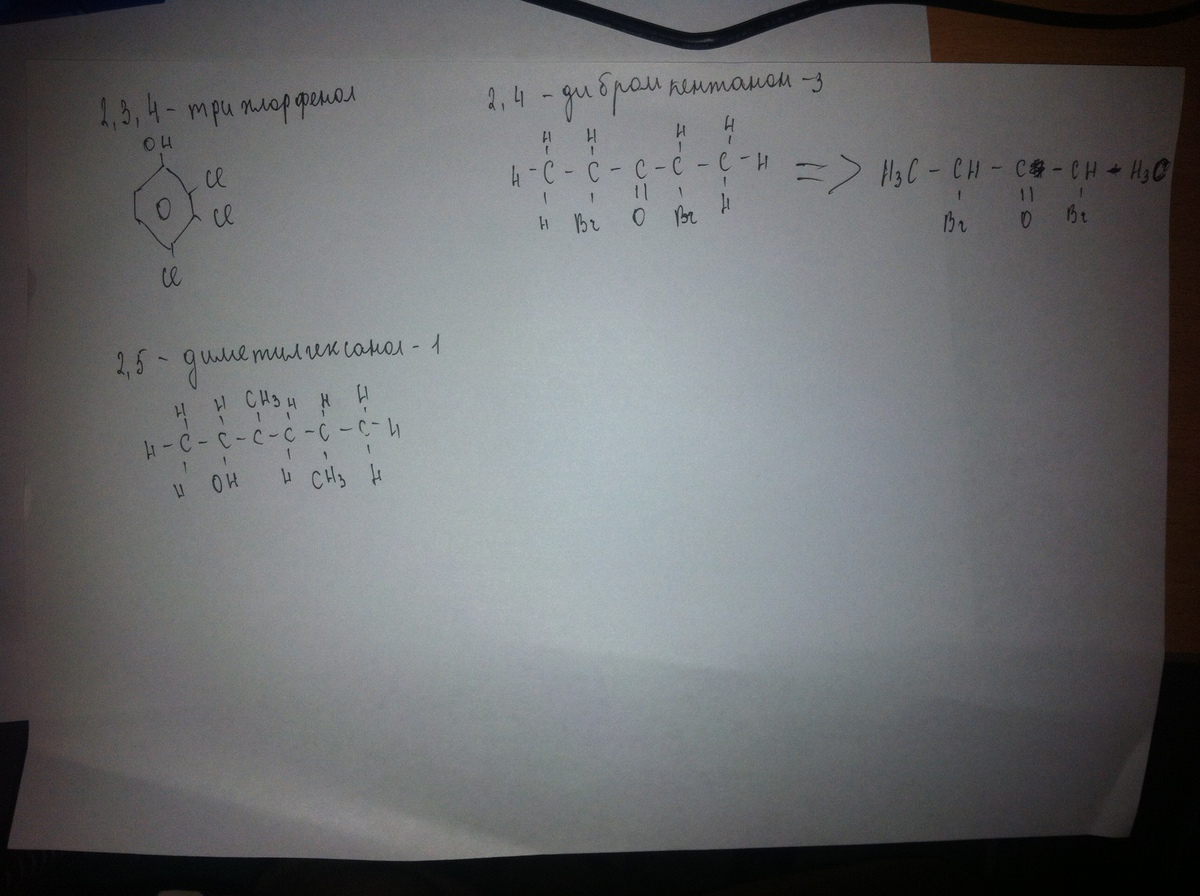 2,3,4 - трихлорфенол
OH
Cl
Cl
Cl
2,4 - дибромпентанон -3
H H H H
H - C - C - C - C - C - H => H3C - CH - C - CH - H3C
H Br O Br H Br O Br
2,5 - диметилгексанол - 1
H H CH3 H H H
H - C - C - C - C - C - C - H
H OH H CH3 H